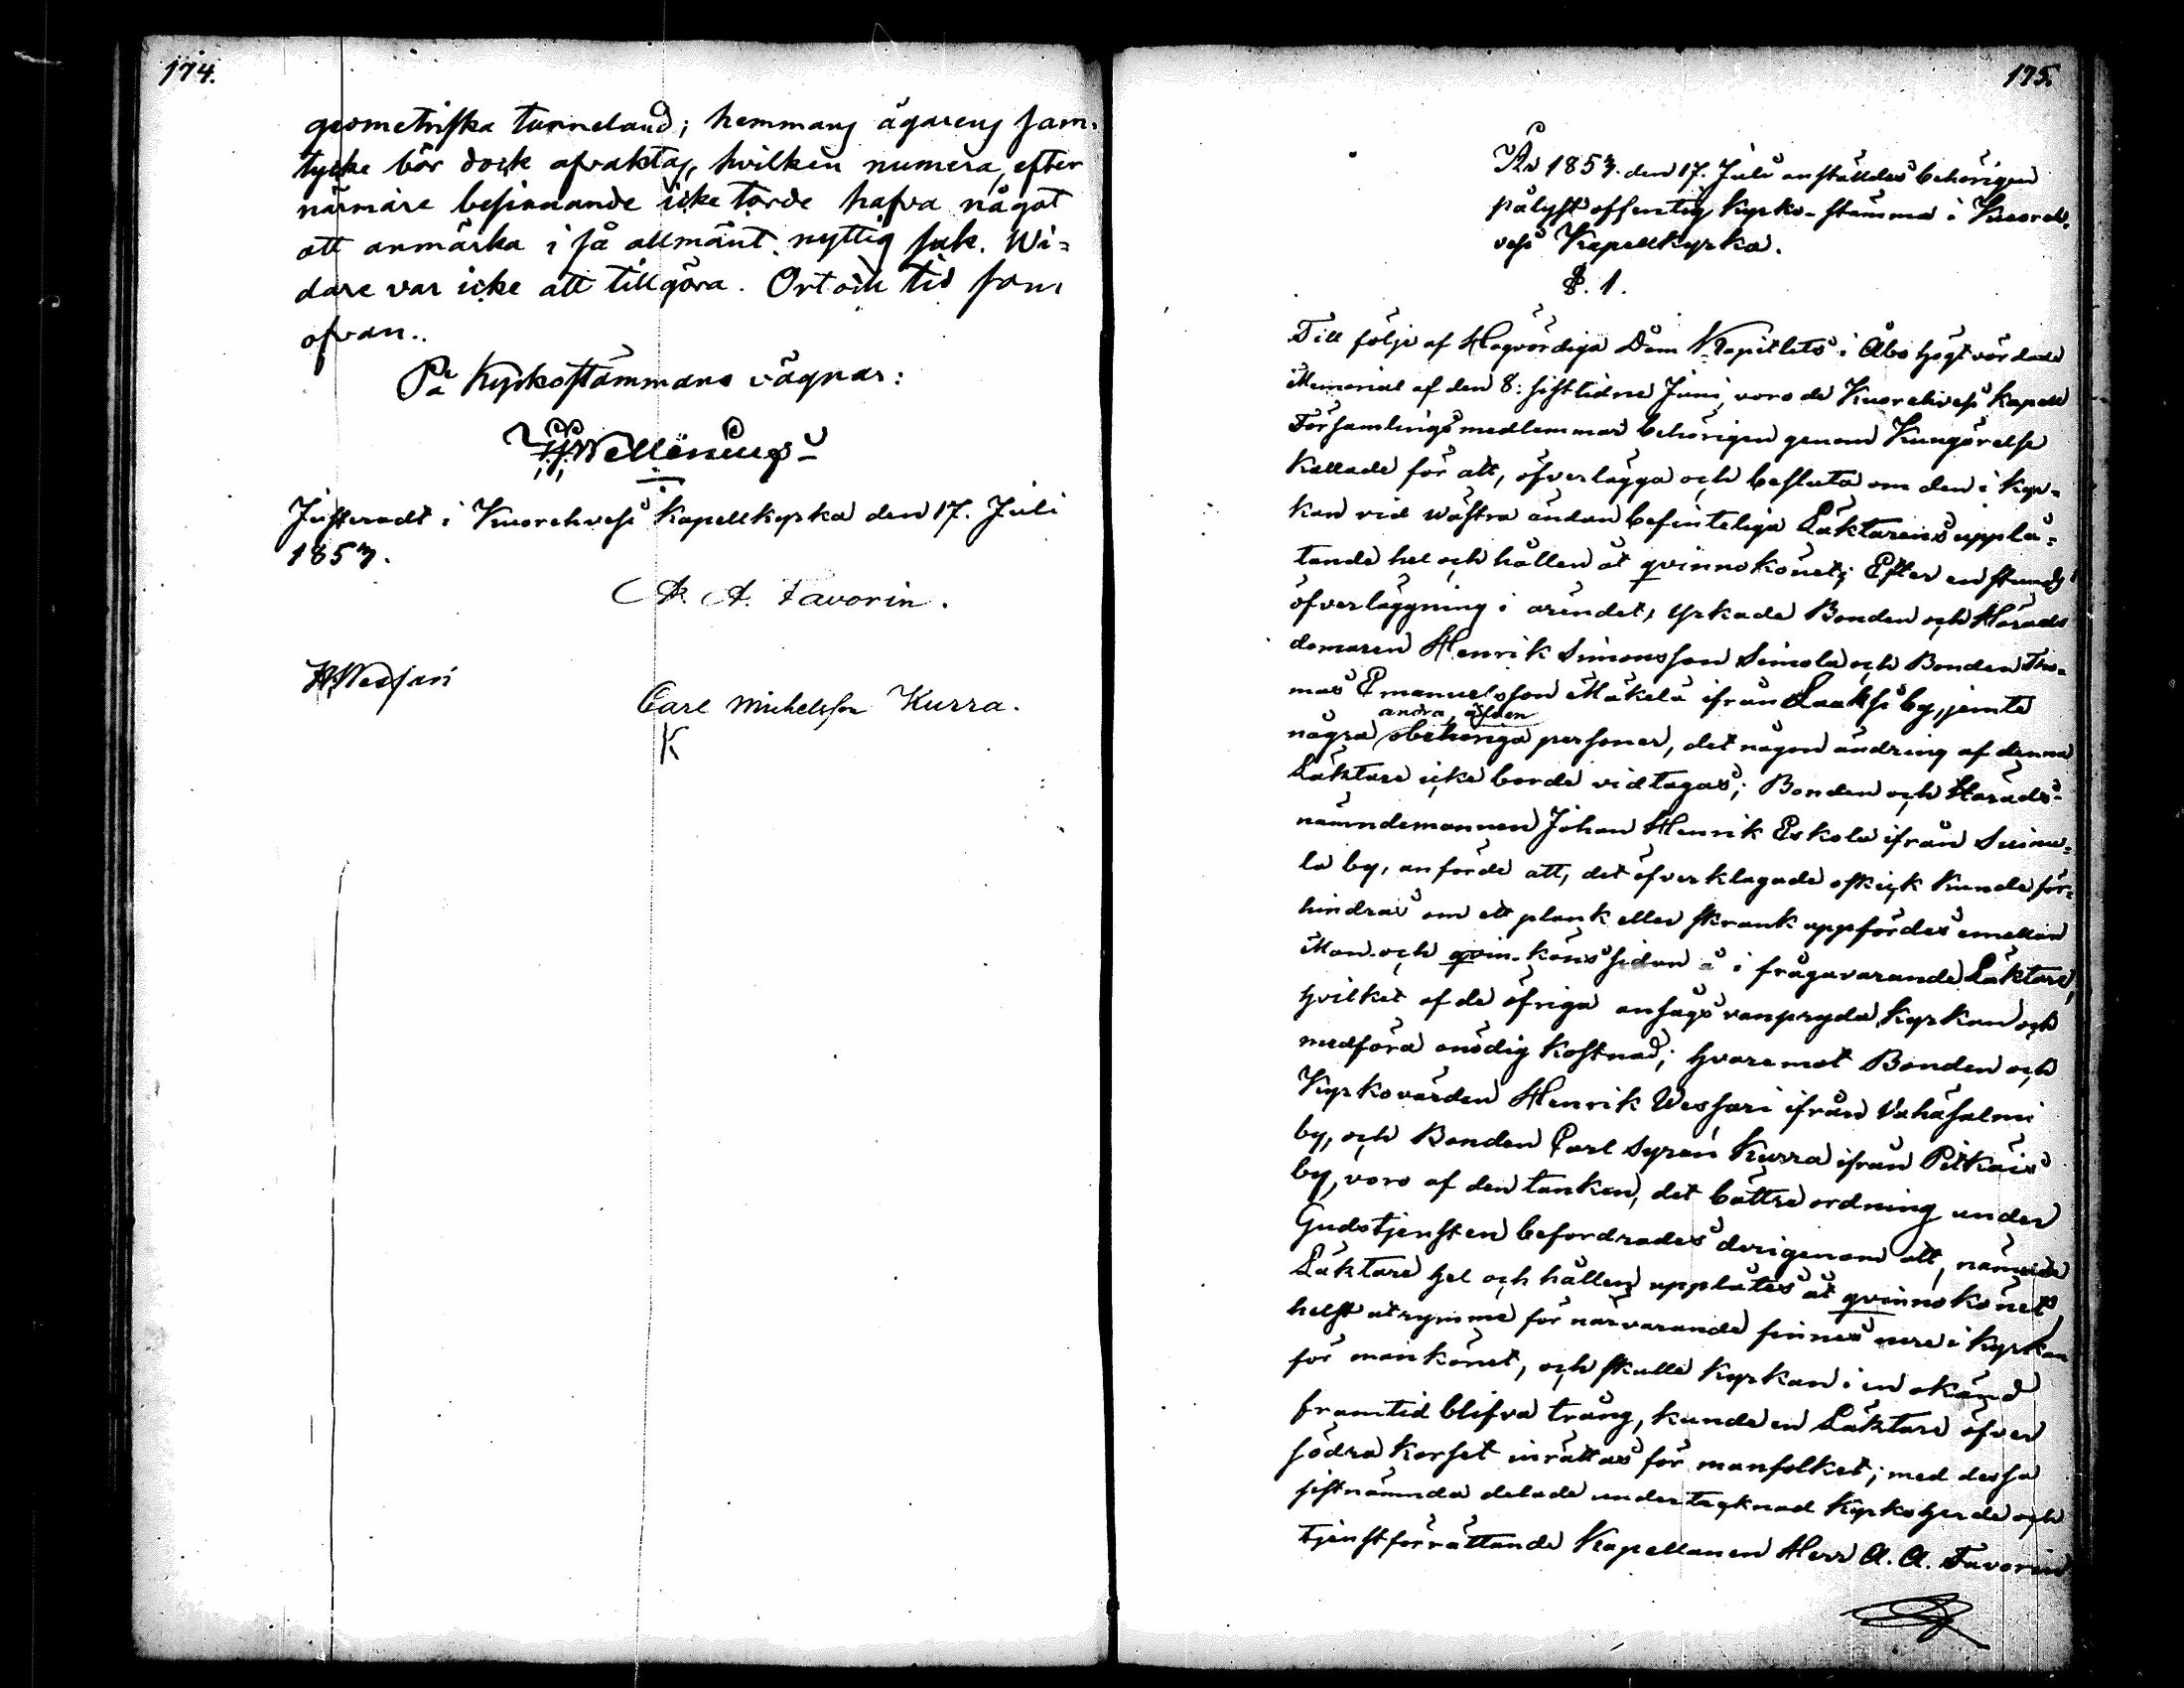 174.
geometriska tunneland; hemmans ägarens sam-
tycke bör dock afvaktas, hvilken numera, efter
närmare besinnande icke torde hafva något
att anmärka i så allmänt nyttig sak. Wi=
dare var icke att tillgöra. Ort och tid som
ofvan..
På Kyrkostämmans vägnar:
Wellenius
Justeradt i Kuorehvesi Kapellkyrka den 17. Juli
1853.
A. A. Favorin.
Carl Michelsson Kurra.
K
175.
År 1853. den 17. Juli anställdes behörigen
pålyst offentlig Kyrko-stämma i Kuoreh-
vesi Kapellkyrka.
§. 1.
Till följe af Högvördiga Dom Kapitlets i Åbo högtvördade
Memorial af den 8: sistlidne Juni, voro de Kuorehvesi Kapell
Församlings medlemmar behörigen genom Kungörelse
kallade för att, öfverlägga och besluta om den i Kyr-
kan vid wästra ändan befinteliga Läktarens upplå-
tande hel och hållen åt qvinnokönet; Efter en stunds
öfverläggning i ärendet, yrkade Bonden och Härads
domaren Henrik Simonsson Simola och Bonden Tho-
mas Emanuelsson Mäkelä ifrån Laaksi by, jemte
andra, äfven
några obehöriga personer, det någon ändring af denna
Läktare icke borde vidtagas; Bonden och Härads-
nämndemannen Johan Henrik Eskola ifrån Suinu-
la by, anförde att, det öfverklagade oskick kunde för-
hindras om ett plank eller skrank uppfördes emellan
Man- och qvin-köns sidan å i frågavarande Läktare,
hvilket af de öfriga ansågs vanpryda Kyrkan och
medföra onödig kostnad; hvaremot Bonden och
Kyrkovärden Henrik Wessari ifrån Vähäsalmi
by, och Bonden Carl Syrén Kurra ifrån Pitkäis
by, voro af den tanken, det bättre ordning under
Gudstjensten befordrades derigenom att, nämnde
Läktare hel och hållen upplåtes åt qvinnokönet,
helst utrymme för närvarande finnes nere i Kyrkan
för mankönet, och skulle Kyrkan i en okänd
framtid blifva trång, kunde en Läktare öfver
södra korset inrättas för manfolket; med dessa
sistnämnda delade undertecknad Kyrkoherde och
tjenstförrättande Kapellanen Herr A. A. Favorin